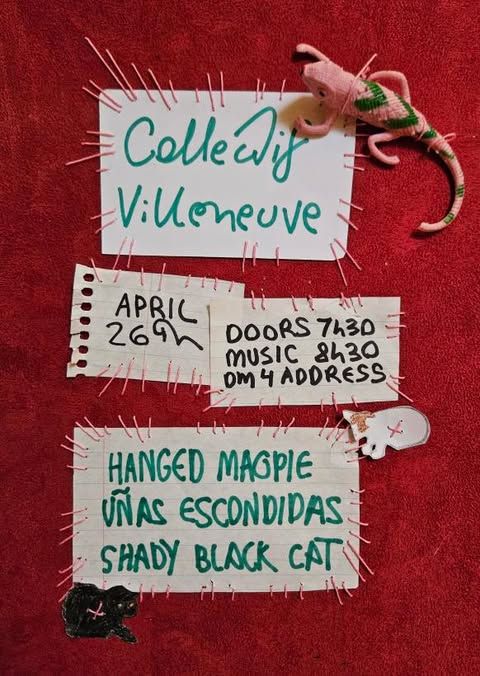 Collectif
Villeneuve
APRIL
26th
DOORS 7h30
MUSIC 8h30
DM 4 ADDRESS
HANGED MAGPIE
UÑAS ESCONDIDAS
SHADY BLACK CAT